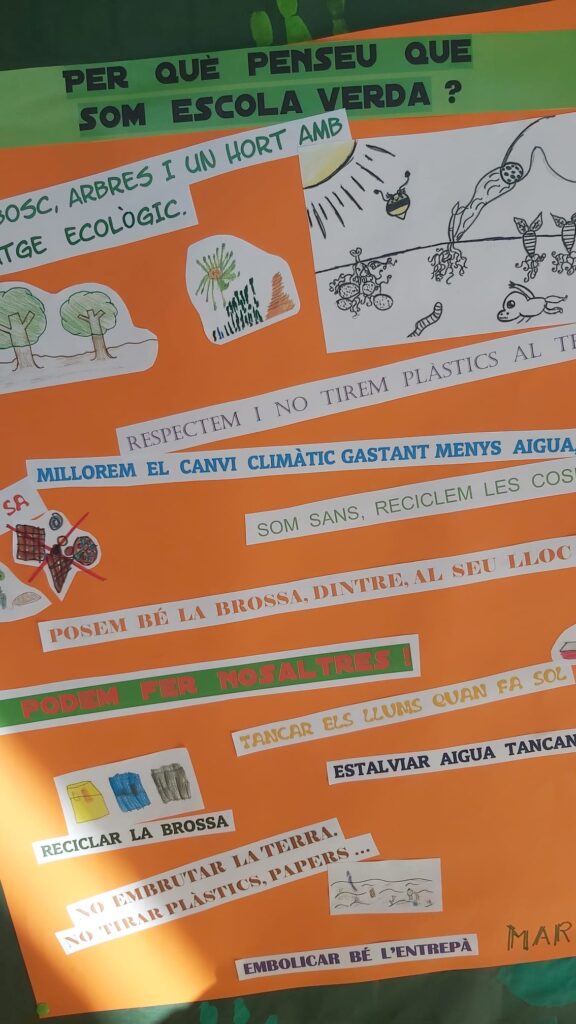 PER QUÈ PENSEU QUE
SOM ESCOLA VERDA ?
BOSC, ARBRES I UN HORT AMB
ATGE ECOLÒGIC.
RESPECTEM I NO TIREM PLÀSTICS AL TE
MILLOREM EL CANVI CLIMÀTIC GASTANT MENYS AIGUA,
SA
SOM SANS, RECICLEM LES COS
POSEM BÉ LA BROSSA, DINTRE, AL SEU LLOC
PODEM FER NOSALTRES !
TANCAR ELS LLUMS QUAN FA SOL
ESTALVIAR AIGUA TANCAN
RECICLAR LA BROSSA
NO EMBRUTAR LA TERRA.
NO TIRAR PLÀSTICS, PAPERS ...
MAR
EMBOLICAR BÉ L'ENTREPÀ